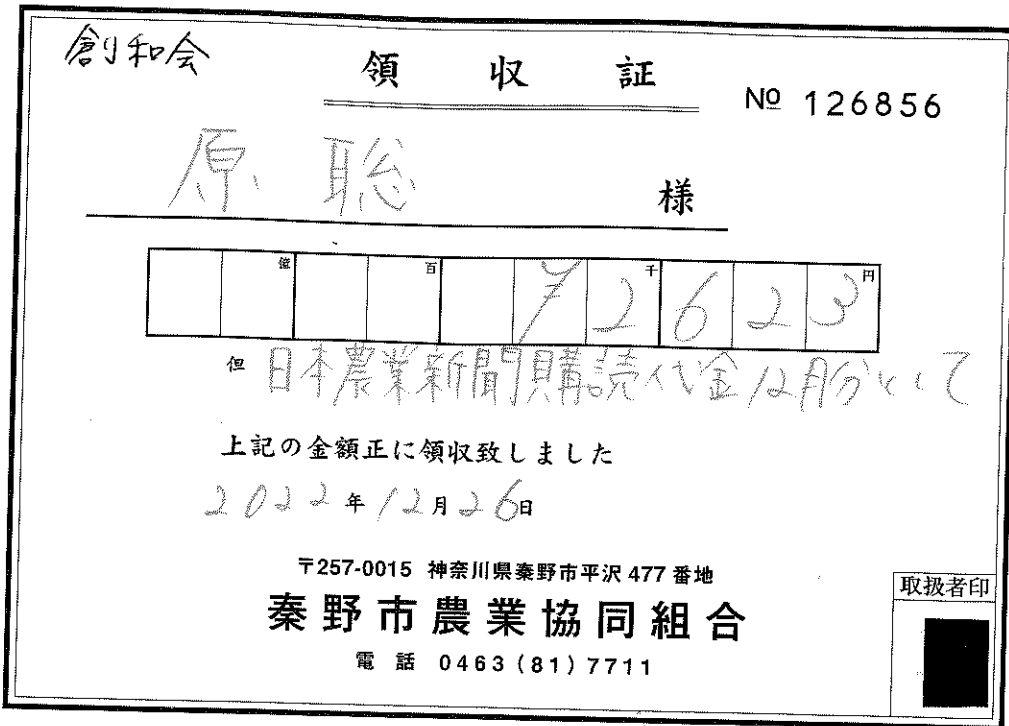 創和会
領収証
No 126856
原 聡 様
億 百 千 円
¥2623
但 日本農業新聞購読代金12月分として
上記の金額正に領収致しました
2022年12月26日
〒257-0015 神奈川県秦野市平沢477番地
秦野市農業協同組合
電話 0463(81)7711
取扱者印